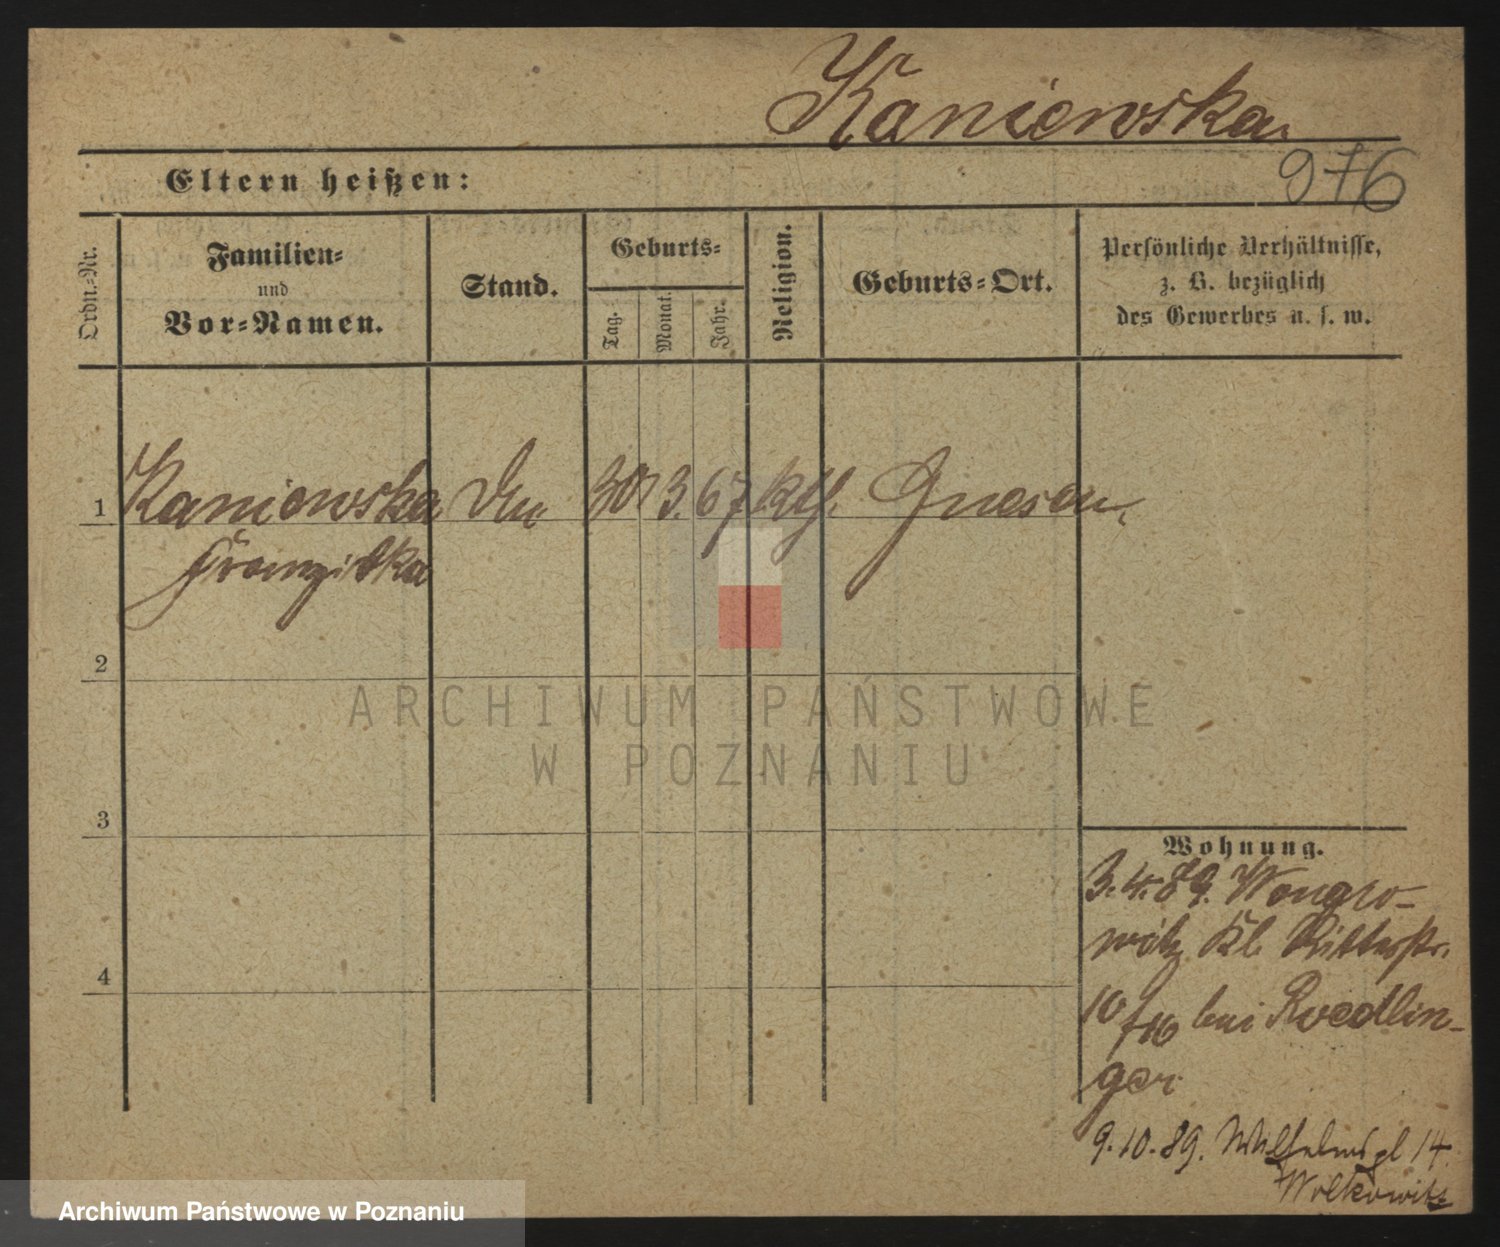 Kaniewska
976
Eltern heißen:
Ordn.-Nr.
Familien-
und
Vor-Namen.
Stand.
Geburts-
Tag.
Monat.
Jahr.
Religion.
Geburts-Ort.
Persönliche Verhältnisse,
z. B. bezüglich
des Gewerbes u. s. w.
1 Kaniewska 30 3. 67 kth. Gnesen
Franziska
2
ARCHIWUM PAŃSTWOWE
W POZNANIU
3
Wohnung.
3.4.89. Wongro-
witz Kl. Ritterstr.
10/16 bei Roedlin-
ger
4
9.10.89. Wilhelmspl 14.
Wolkowitz
Archiwum Państwowe w Poznaniu